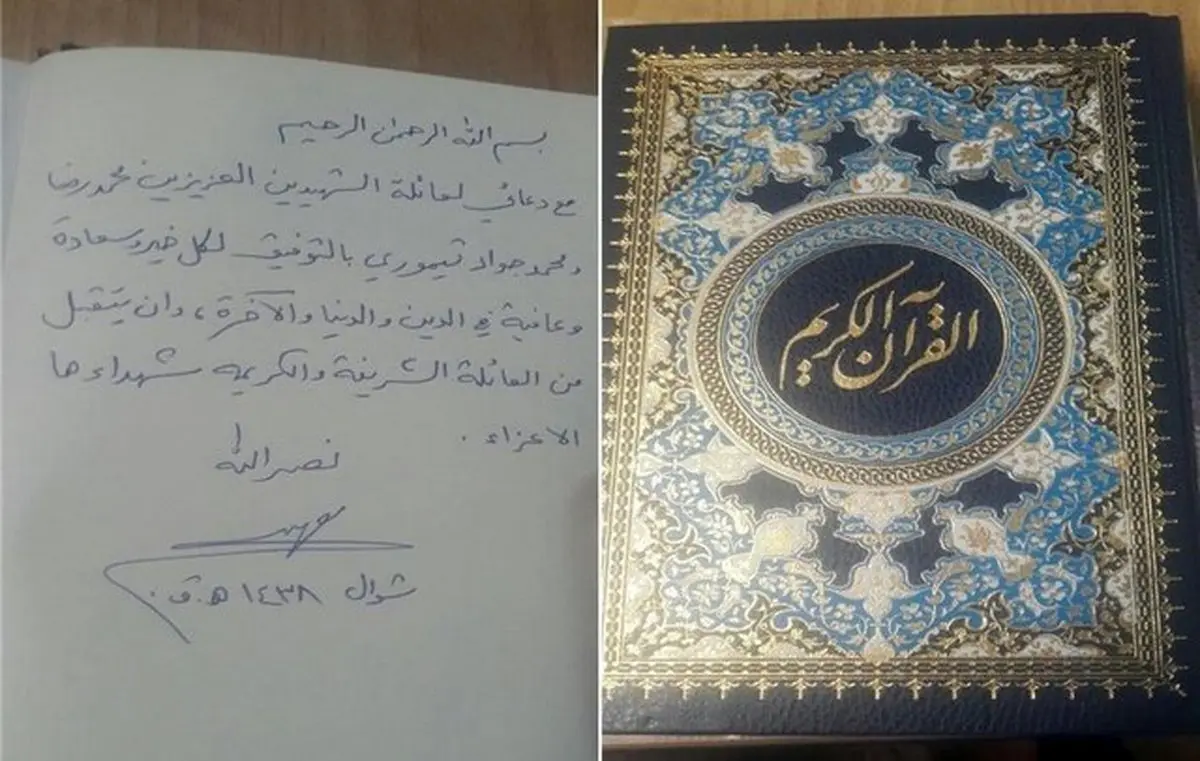 بسم الله الرحمن الرحيم
مع دعائي لعائلة الشهيدين العزيزين محمد رضا
ومحمد جواد تيموري بالتوفيق لكل خير وسعادة
وعافية في الدين والدنيا والآخرة، وان يتقبل
من العائلة الشريفة والكريمه شهداءها
الاعزاء .
نصر الله
شوال ١٤٣٨ هـ.ق.
القرآن الكريم